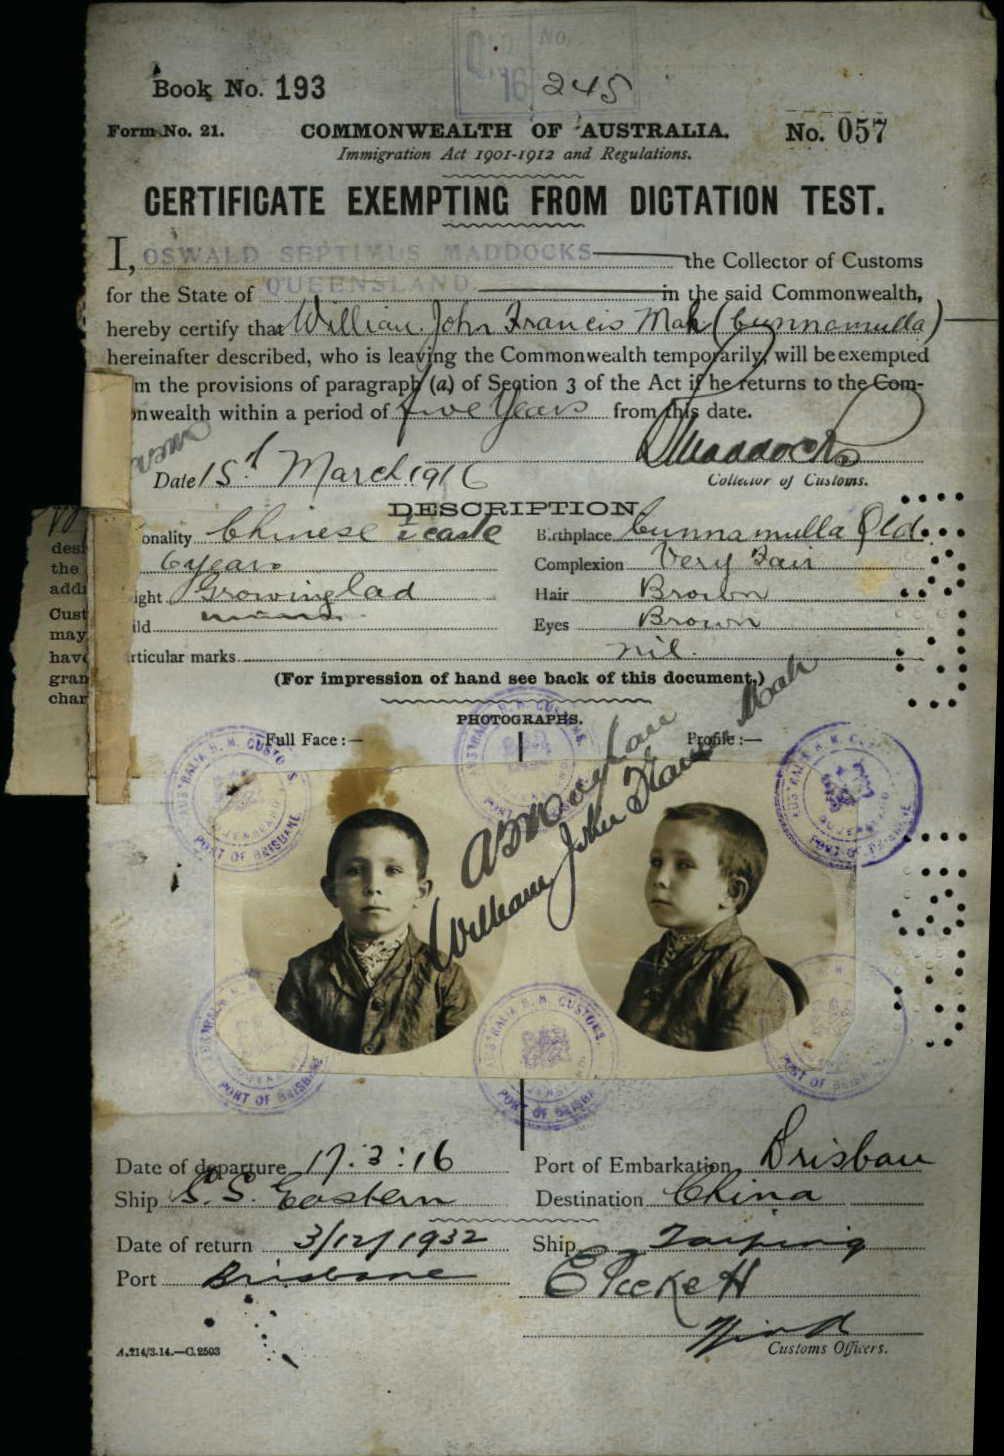 Qld No.
16 245
Book No. 193
Form No. 21. COMMONWEALTH OF AUSTRALIA. No. 057
Immigration Act 1901-1912 and Regulations.
CERTIFICATE EXEMPTING FROM DICTATION TEST.
I, OSWALD SEPTIMUS MADDOCKS the Collector of Customs
for the State of QUEENSLAND in the said Commonwealth,
hereby certify that William John Francis Mah (Cunnamulla)
hereinafter described, who is leaving the Commonwealth temporarily, will be exempted
m the provisions of paragraph (a) of Section 3 of the Act if he returns to the Com-
onwealth within a period of five years from this date.
Date 15th March 1916
Collector of Customs.
DESCRIPTION
onality Chinese ½ caste Birthplace Cunnamulla Qld.
6 years Complexion Very Fair
ight Growing lad Hair Brown
ild Eyes Brown
rticular marks nil.
des
the
add
Cust
may
hav
gran
char
(For impression of hand see back of this document.)
PHOTOGRAPHS.
Full Face :— Profile :—
AUSTRALIA H. M. CUSTOMS
QUEENSLAND
PORT OF BRISBANE
William John Francis Mah
Date of departure 17.3.16 Port of Embarkation Brisbane
Ship S.S. Eastern Destination China
Date of return 3/12/1932 Ship Taiping
Port Brisbane E Pickett
Customs Officers.
A.214/3.14.—C.2503